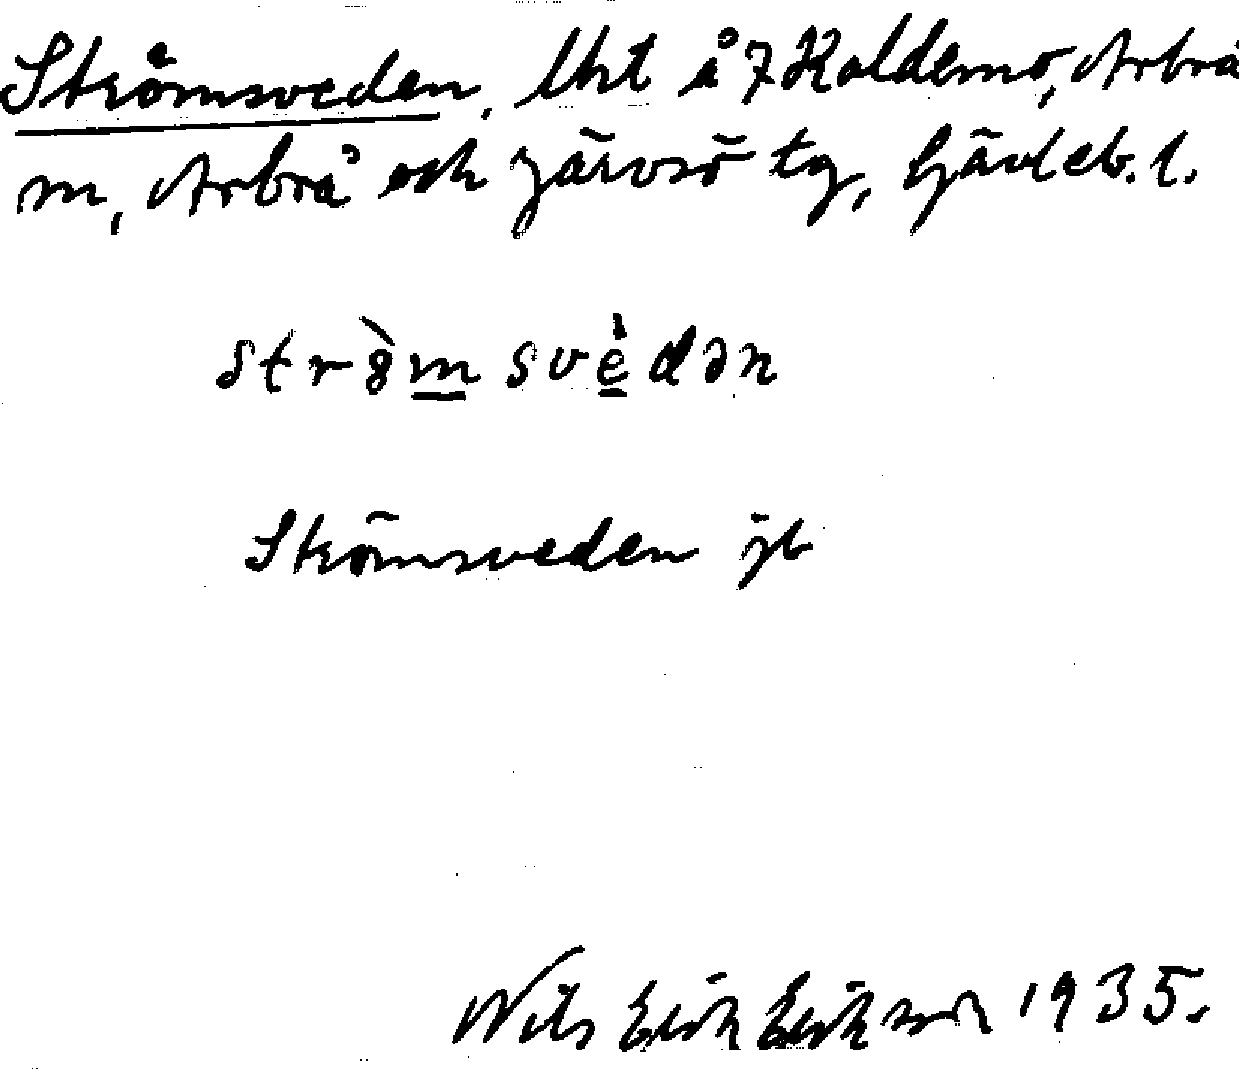 Strömsveden, lht å 7 Koldemo, Arbrå
sn, Arbrå och Järvsö tg, Gävleb. l.
strò̱msvè̱dən
Strömsveden jb
Nils Erik Eriksson 1935.